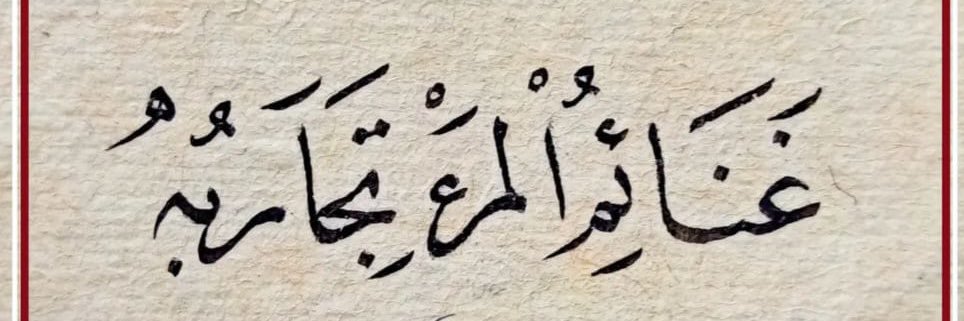 غَنَائِمُ الْمَرْءِ تَجَارِبُهُ